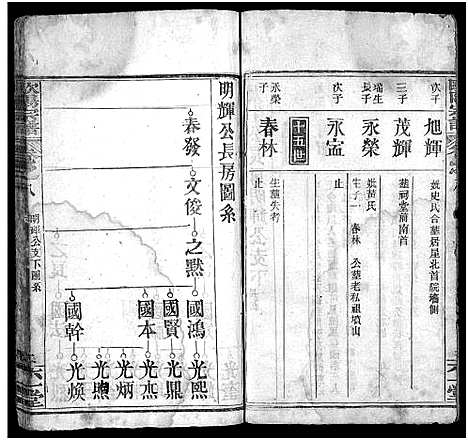 次子
旭輝
妣史氏合墓居屋北首院墻側
三子
茂輝
墓祠堂前南首
瑞生長子
永榮
妣黃氏
生子一 春林 公墓老私祖墳山
次子
永富
止
十五世
永榮子
春林
生墓失考
止
明輝公長房圖系
春發
文俊
之黙
國鴻
光熙
國賢
光鼎
國本
光杰
光炳
國幹
光煥
明輝公支下圖系
八
六一堂